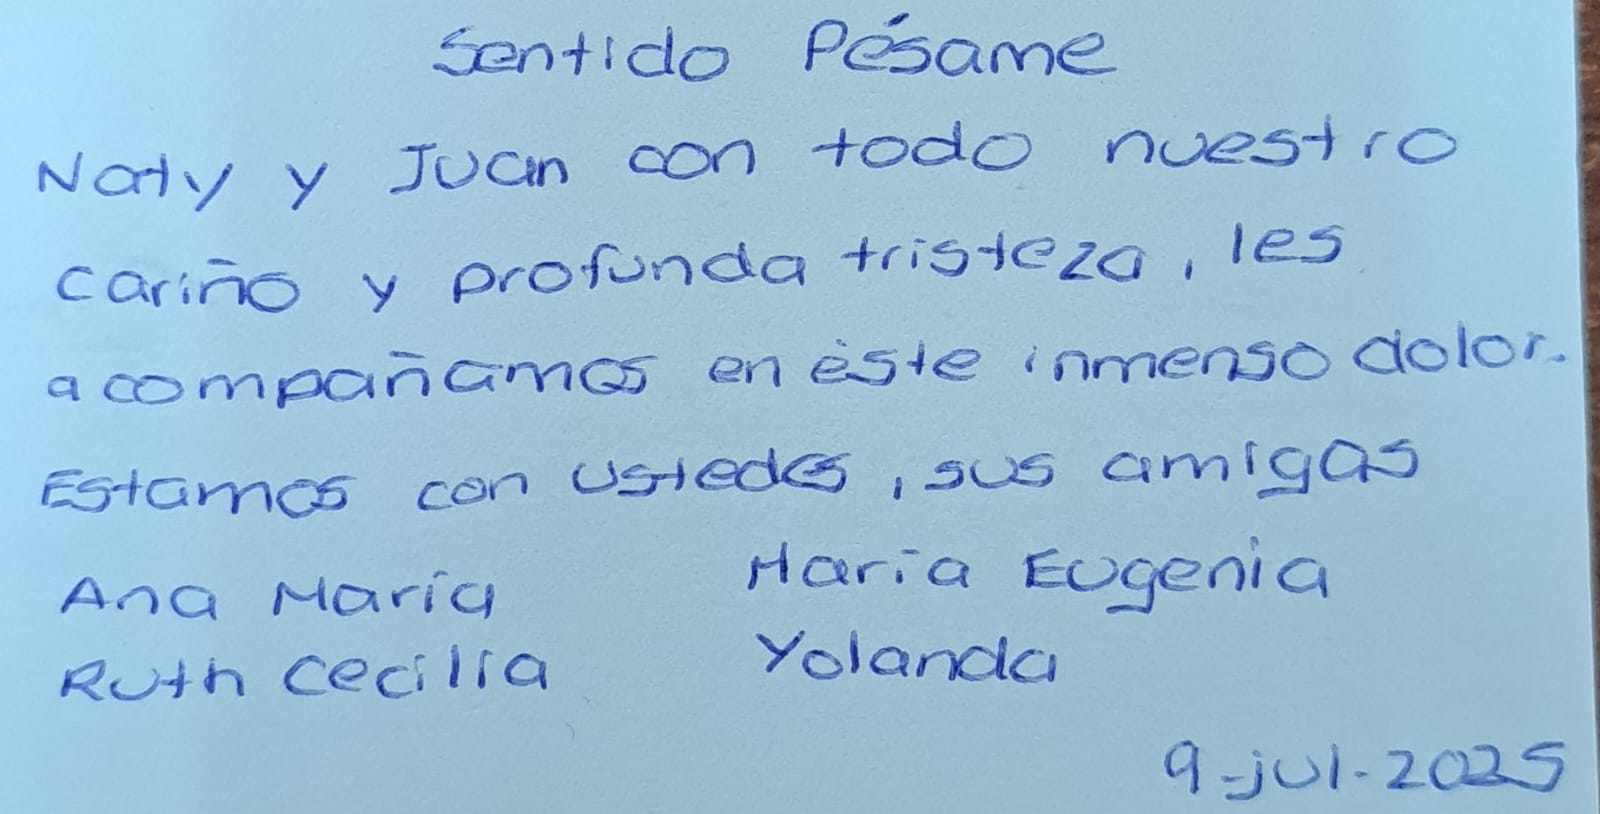 Sentido Pésame
Naty y Juan con todo nuestro
cariño y profunda tristeza, les
acompañamos en éste inmenso dolor.
Estamos con ustedes, sus amigas
Ana María María Eugenia
Ruth Cecilia Yolanda
9-jul-2025